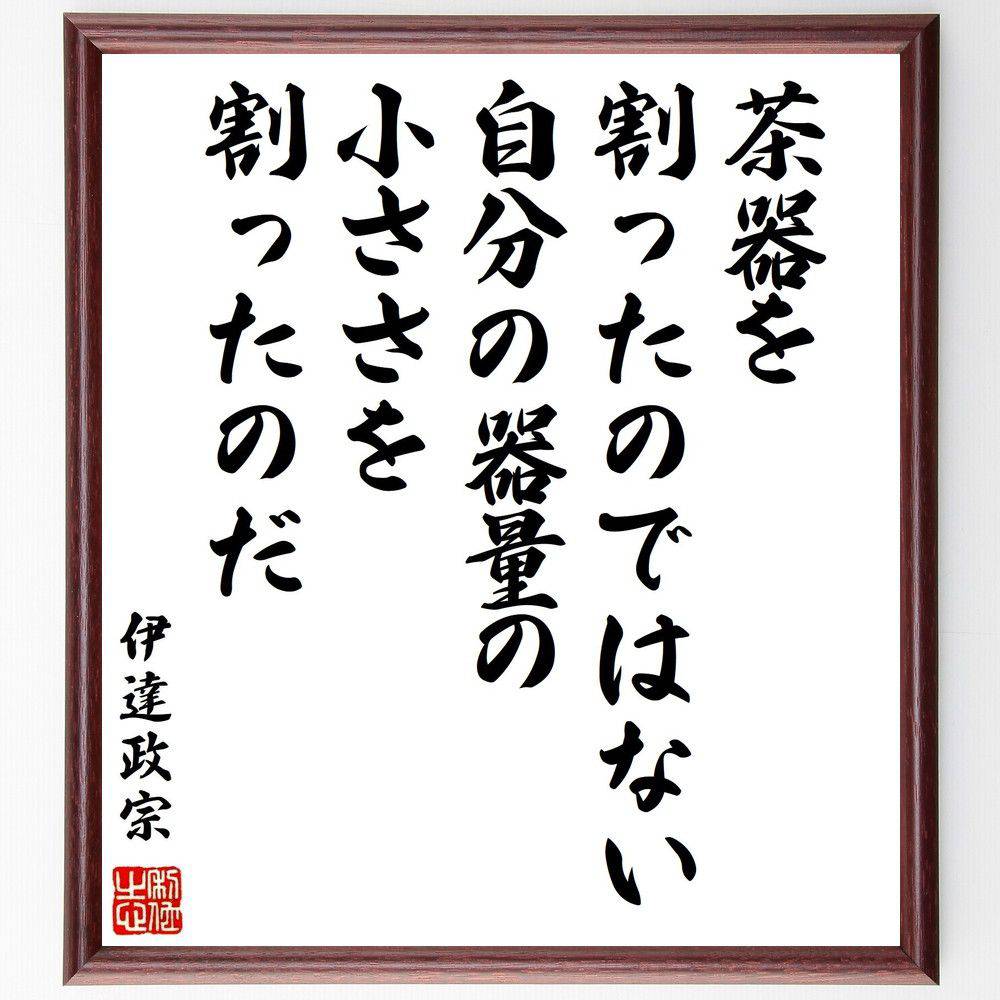 茶器を
割ったのではない
自分の器量の
小ささを
割ったのだ
伊達政宗